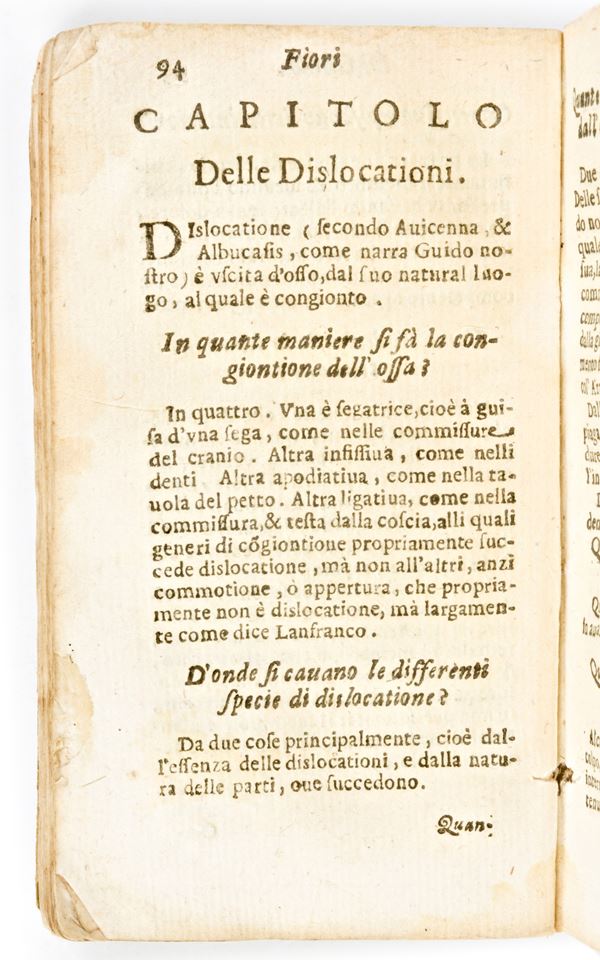 94 Fiori
CAPITOLO
Delle Dislocationi.
DIslocatione ( ſecondo Auicenna, &
Albucaſis, come narra Guido no-
ſtro) è vſcita d'oſſo, dal ſuo natural luo-
go, al quale è congionto.
In quante maniere ſi fà la con-
giontione dell' oſſa?
In quattro. Vna è ſegatrice, cioè à gui-
ſa d'vna ſega, come nelle commiſſure
del cranio. Altra infiſſiua, come nelli
denti Altra apodiatiua, come nella ta-
uola del petto. Altra ligatiua, come nella
commiſſura, & teſta dalla coſcia, alli quali
generi di cõgiontione propriamente ſuc-
cede dislocatione, mà non all'altri, anzi
commotione, ò appertura, che propria-
mente non è dislocatione, mà largamen-
te come dice Lanfranco.
D'onde ſi cauano le differenti
ſpecie di dislocatione?
Da due coſe principalmente, cioè dal-
l'eſſenza delle dislocationi, e dalla natu-
ra delle parti, oue ſuccedono.
Quan-
Due